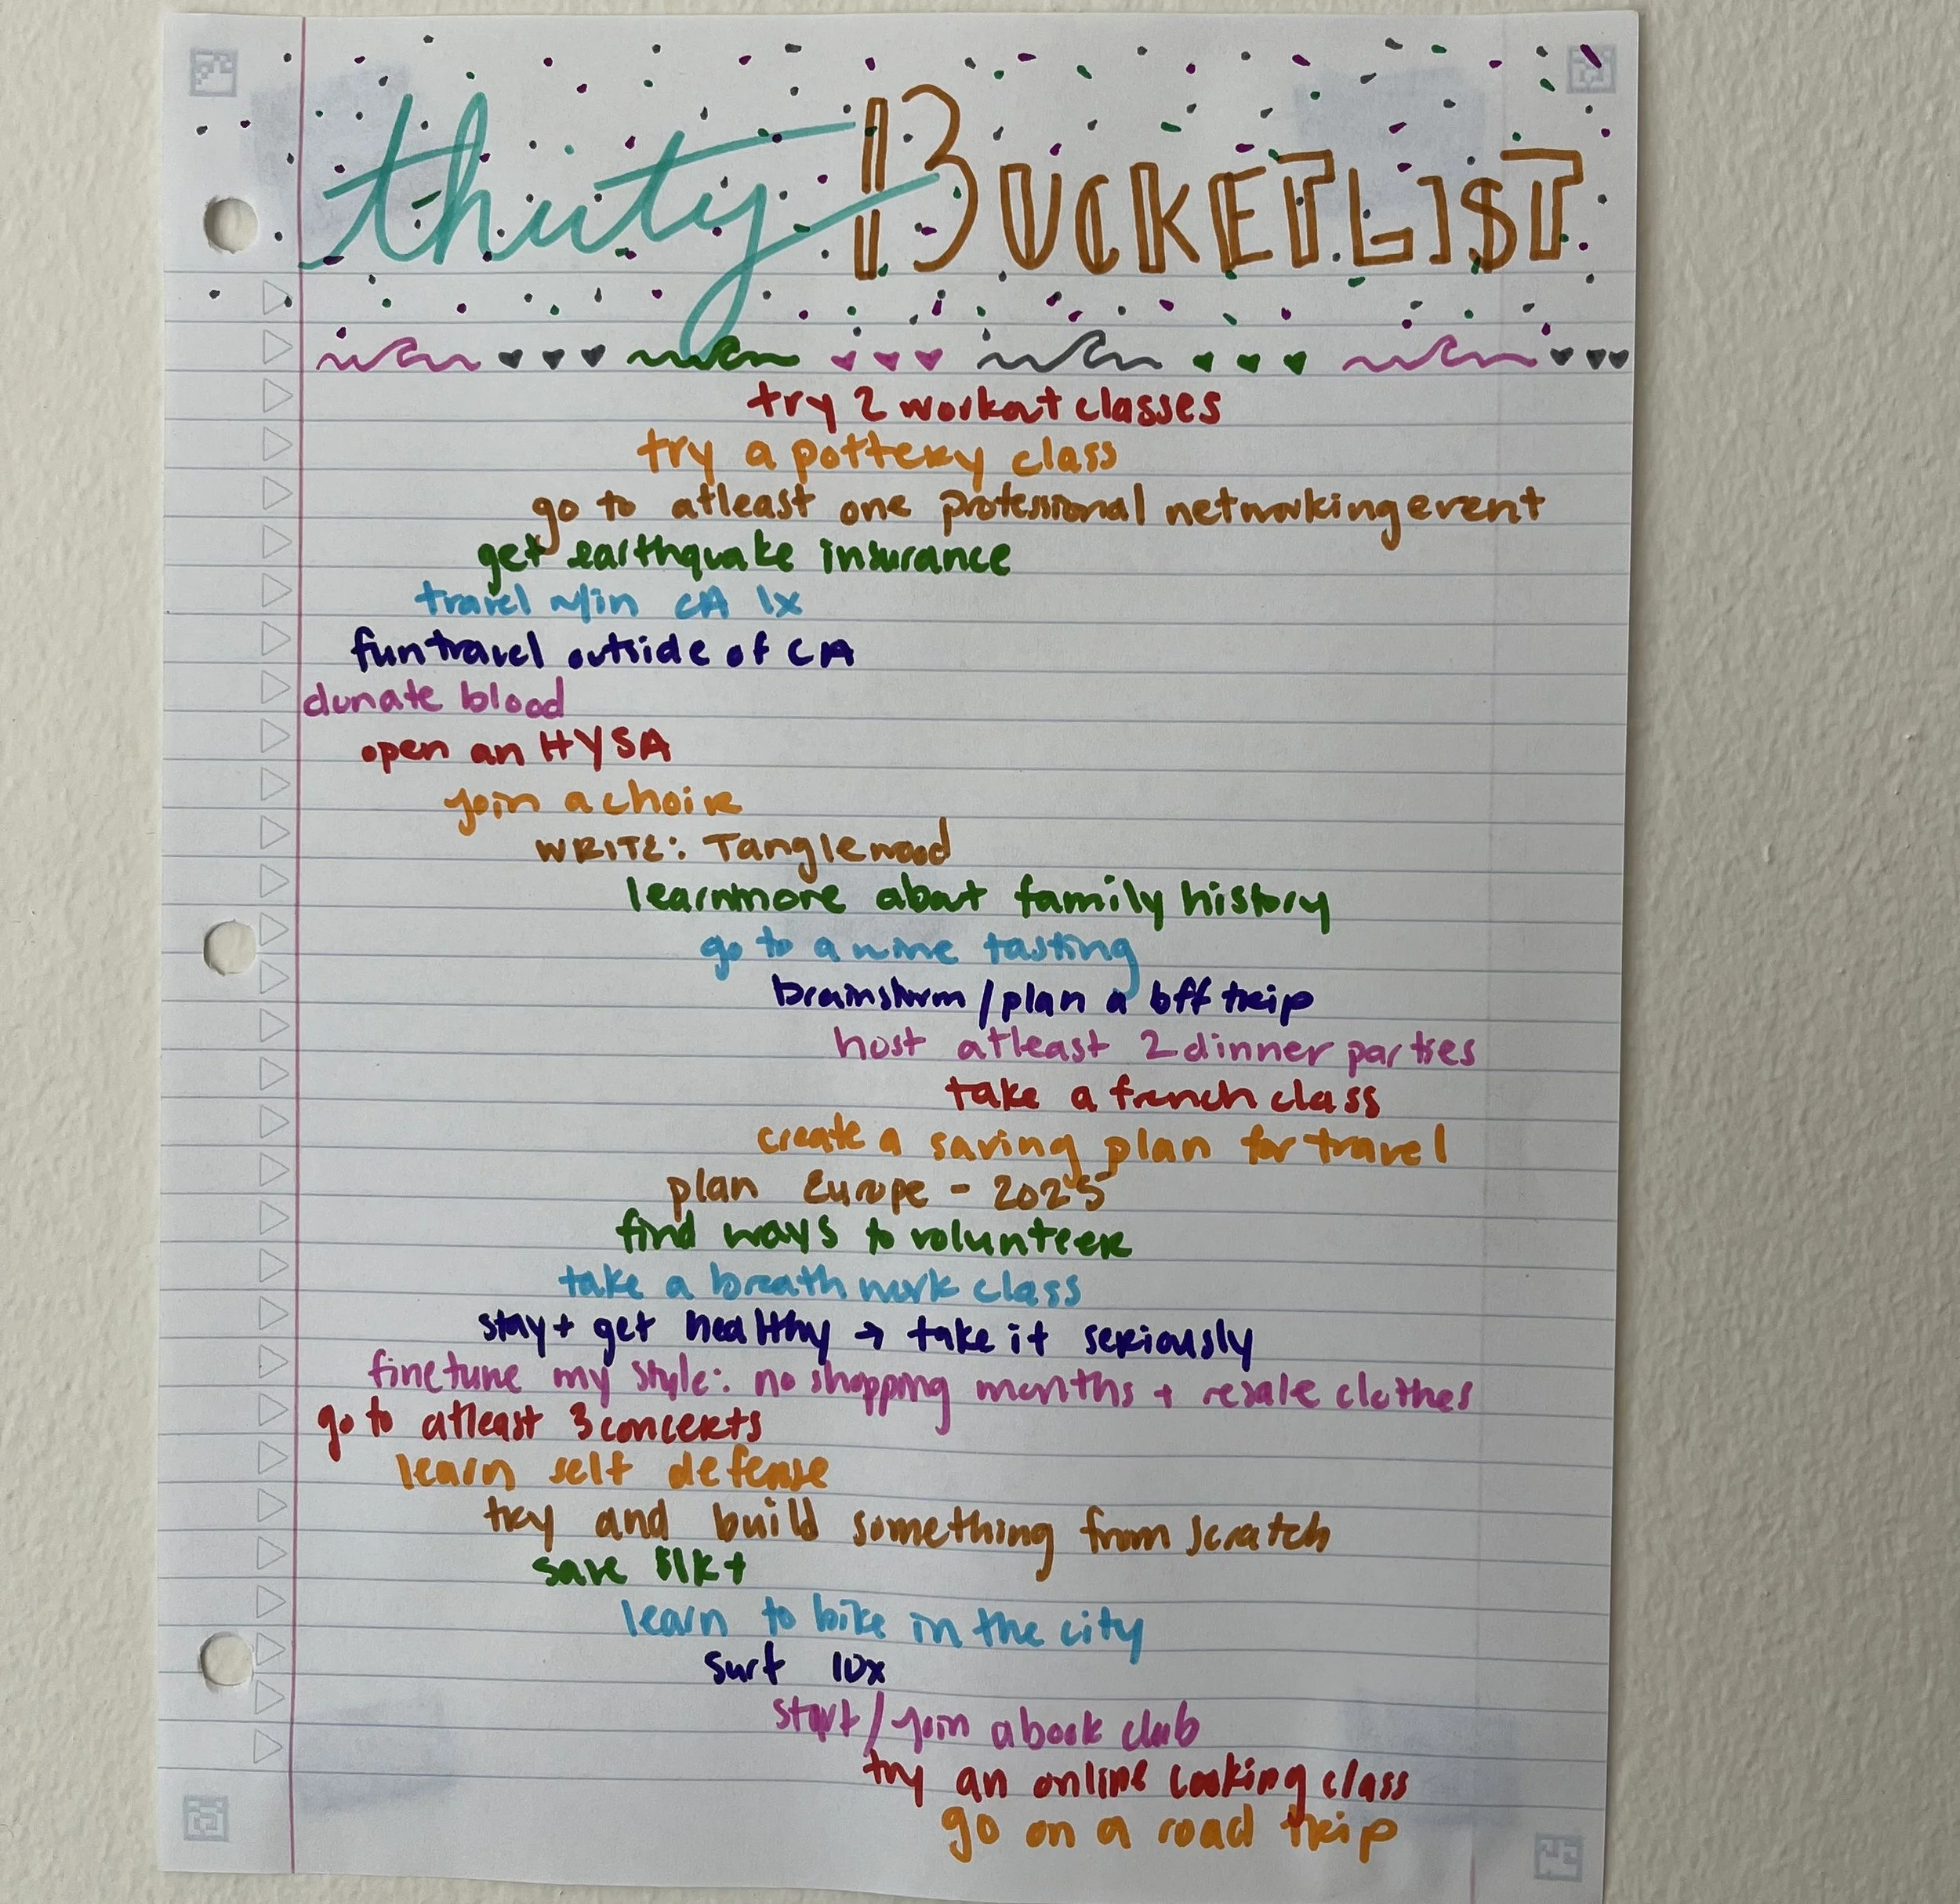 thirty BUCKETLIST
try 2 workout classes
try a pottery class
go to atleast one professional networking event
get earthquake insurance
travel w/in CA 1x
fun travel outside of CA
donate blood
open an HYSA
join a choir
WRITE: Tanglewood
learn more about family history
go to a wine tasting
brainstorm / plan a bff trip
host atleast 2 dinner parties
take a french class
create a saving plan for travel
plan Europe - 2025
find ways to volunteer
take a breath work class
stay + get healthy → take it seriously
finetune my style: no shopping months + resale clothes
go to atleast 3 concerts
learn self defense
try and build something from scratch
save
learn to bike in the city
surf 10x
start / join a book club
try an online cooking class
go on a road trip